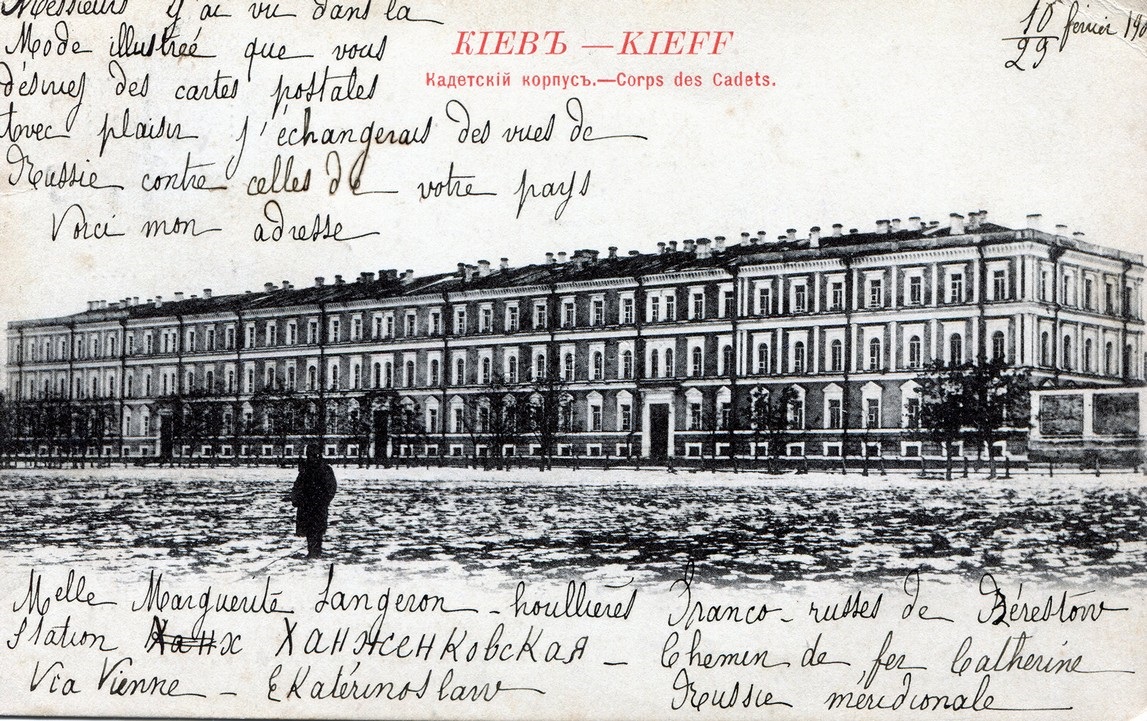 Messieurs j'ai vu dans la
Mode illustreé que vous
désirez des cartes postales
Avec plaisir j'échangerais des vues de
Russie contre celles de votre pays
Voici mon adresse
КІЕВЪ — KIEFF
Кадетскій корпусъ.—Corps des Cadets.
16/29 février 190
Melle Marguerite Langeron - houllières Franco-russes de Bérestow
Station Ханж Ханженковская - Chemin de fer Catherine
Via Vienne - Ekatérinoslaw Russie méridionale